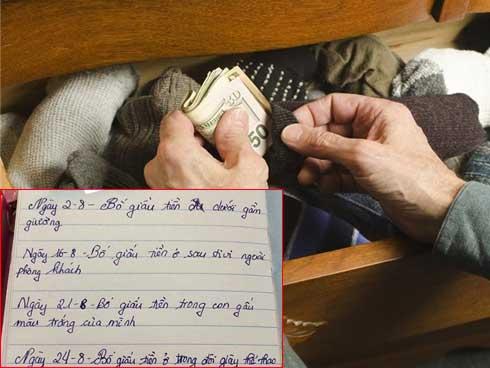 50
Ngày 2-8 - Bố giấu tiền dưới gầm
giường
Ngày 16-8 - Bố giấu tiền ở sau tivi ngoài
phòng khách
Ngày 21-8 - Bố giấu tiền trong con gấu
màu trắng của mình
Ngày 24-8 - Bố giấu tiền ở trong đôi giày thể thao